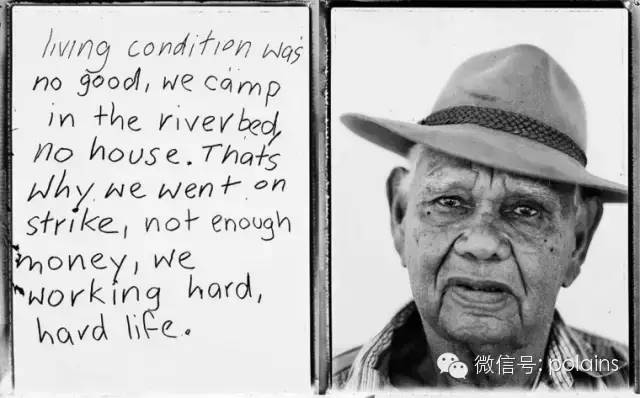 living condition was
no good, we camp
in the riverbed,
no house. Thats
why we went on
strike, not enough
money, we
working hard,
hard life.
微信号: polains